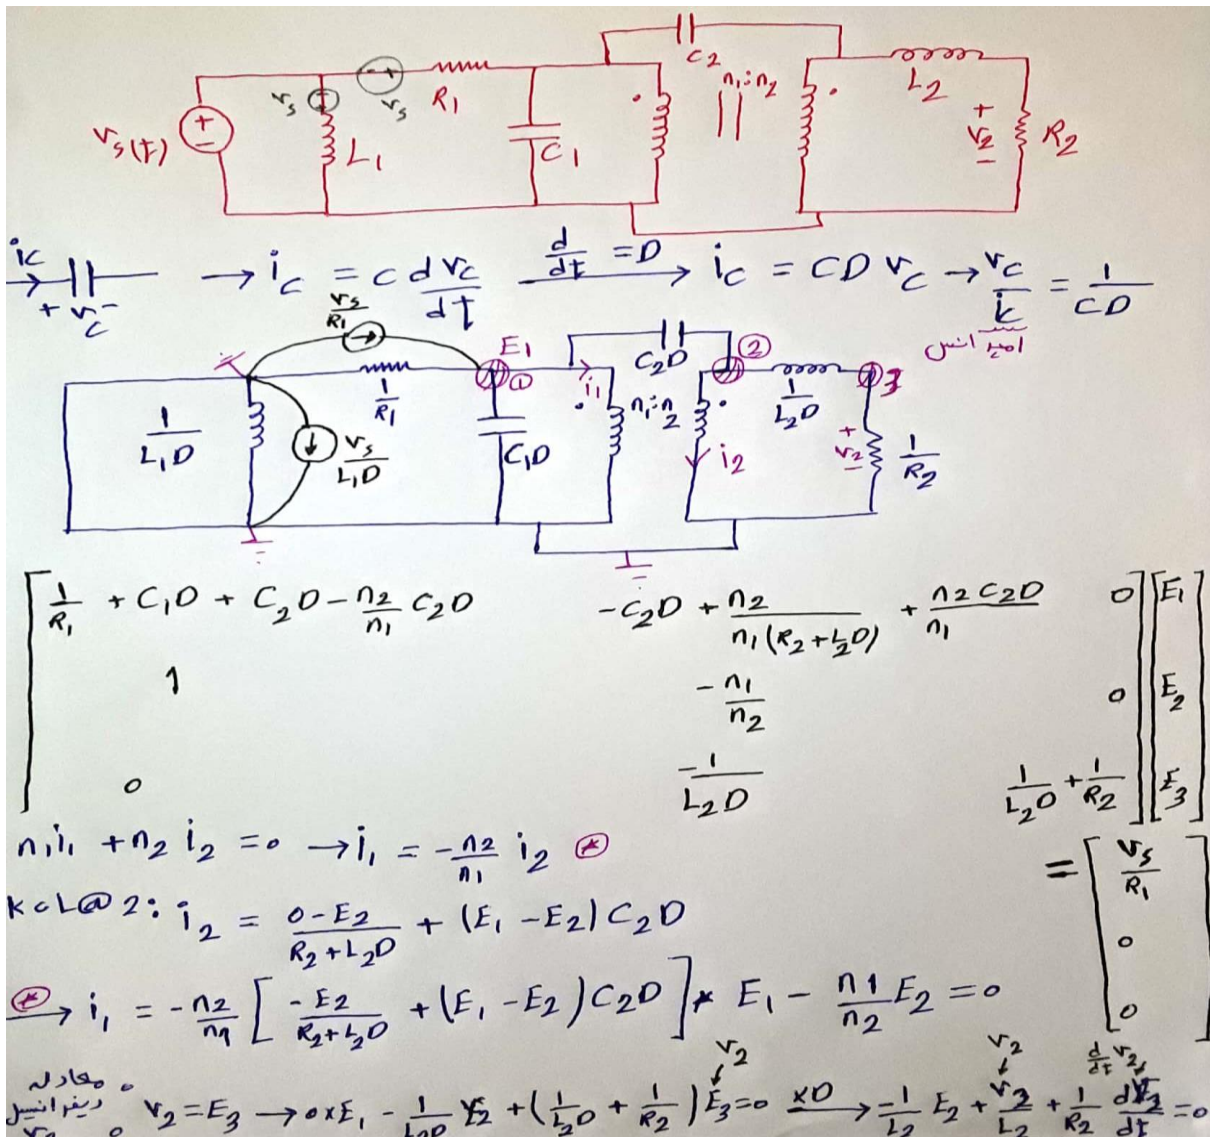 C₂
n₁:n₂
L₂
v_s
v_s
R₁
v_s(t)
L₁
C₁
+ v₂ −
R₂
i_c
+ v_c −
→ i_c = C dv_c/dt  d/dt = D →  i_c = CD v_c → v_c/i_c = 1/CD
امپدانس
v_s/R₁
E₁
①
1/R₁
i₁
C₂D
②
1/L₂D
3
n₁:n₂
1/L₁D
v_s/L₁D
C₁D
i₂
+ v₂ −
1/R₂
[ 1/R₁ + C₁D + C₂D − n₂/n₁ C₂D   −C₂D + n₂/n₁(R₂+L₂D) + n₂C₂D/n₁   0 ] [ E₁ ]
1   −n₁/n₂   0   E₂
0   −1/L₂D   1/L₂D + 1/R₂   E₃
= [ v_s/R₁
0
0 ]
n₁i₁ + n₂i₂ = 0 → i₁ = −n₂/n₁ i₂ ⊛
KCL@2: i₂ = 0−E₂/R₂+L₂D + (E₁ − E₂) C₂D
⊛ → i₁ = −n₂/n₁ [ −E₂/R₂+L₂D + (E₁ − E₂) C₂D ] * E₁ − n1/n₂ E₂ = 0
معادله
دیفرانسیل
v₂ = E₃ → 0×E₁ − 1/L₂D E₂ + (1/L₂D + 1/R₂) E₃ = 0 ×D → −1/L₂ E₂ + v₂/L₂ + 1/R₂ dv₂/dt = 0
v₂
v₂
d/dt v₂